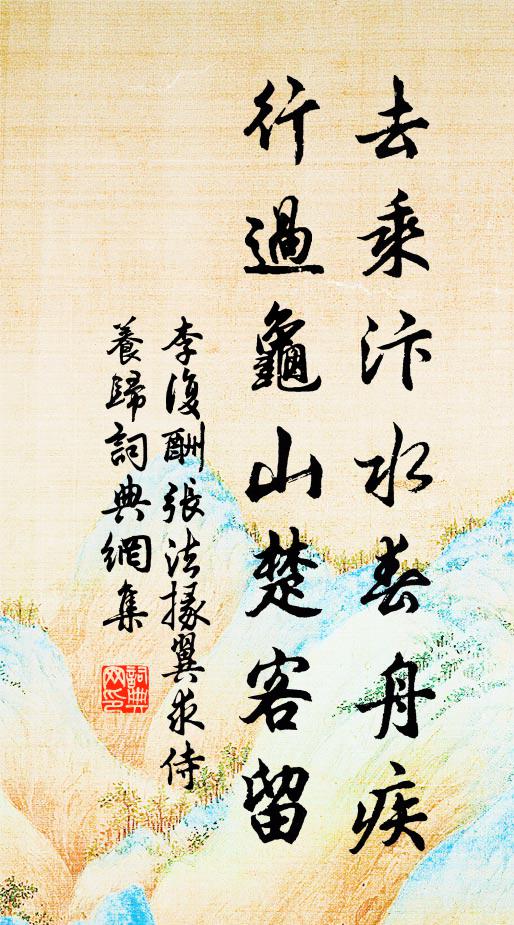 去乘汴水春舟疾
行過龜山楚客留
李復酬張法掾翼求侍
養歸詞典網集
詞典網印